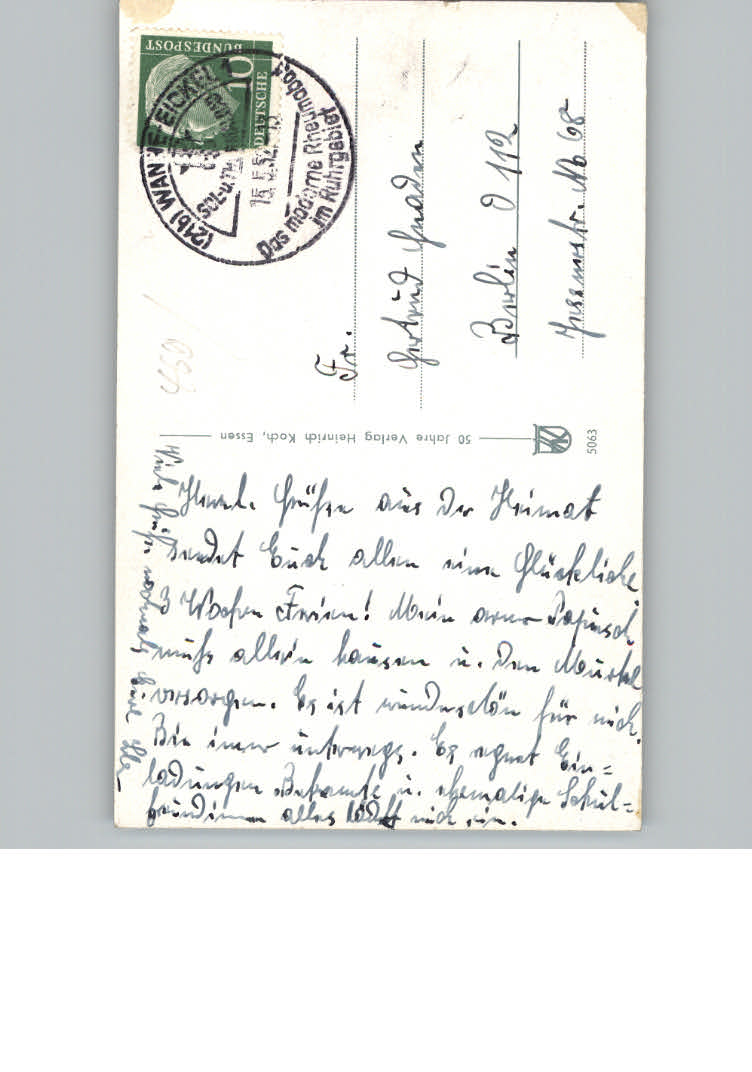 DEUTSCHE
BUNDESPOST
10
(21b) WANNE-EICKEL 1
SOL-u.
Das moderne Rheumabad
im Ruhrgebiet
Fr.
Gertrud Gnaden
Berlin O 112
No 68
50 Jahre Verlag Heinrich Koch, Essen
5063
Herzl. Grüße aus der Heimat
sendet Euch allen eine Glückliche
3 Wochen Ferien! Mein armer
muß allein hausen u. den
versorgen. Es ist wunderschön für mich.
Bin immer unterwegs. Es regnet Ein=
ladungen Bekannte u. ehemalige Schul=
freundinnen alles lädt mich ein.
Viele Grüße nochmals Eure